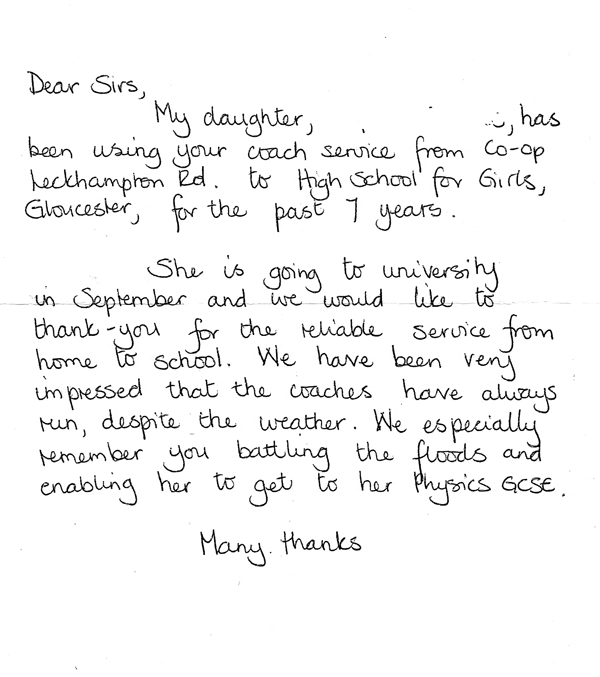 Dear Sirs,
My daughter, , has
been using your coach service from Co-op
Leckhampton Rd. to High School for Girls,
Gloucester, for the past 7 years.
She is going to university
in September and we would like to
thank-you for the reliable service from
home to school. We have been very
impressed that the coaches have always
run, despite the weather. We especially
remember you battling the floods and
enabling her to get to her Physics GCSE.
Many thanks